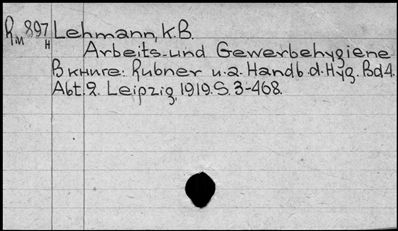 Rм 897 Lehmann, K.B.
н Arbeits-und Gewerbehygiene
В книге: Rubner и.а. Handb.d.Hyg. Bd4.
Abt.2. Leipzig, 1919. S. 3-468.